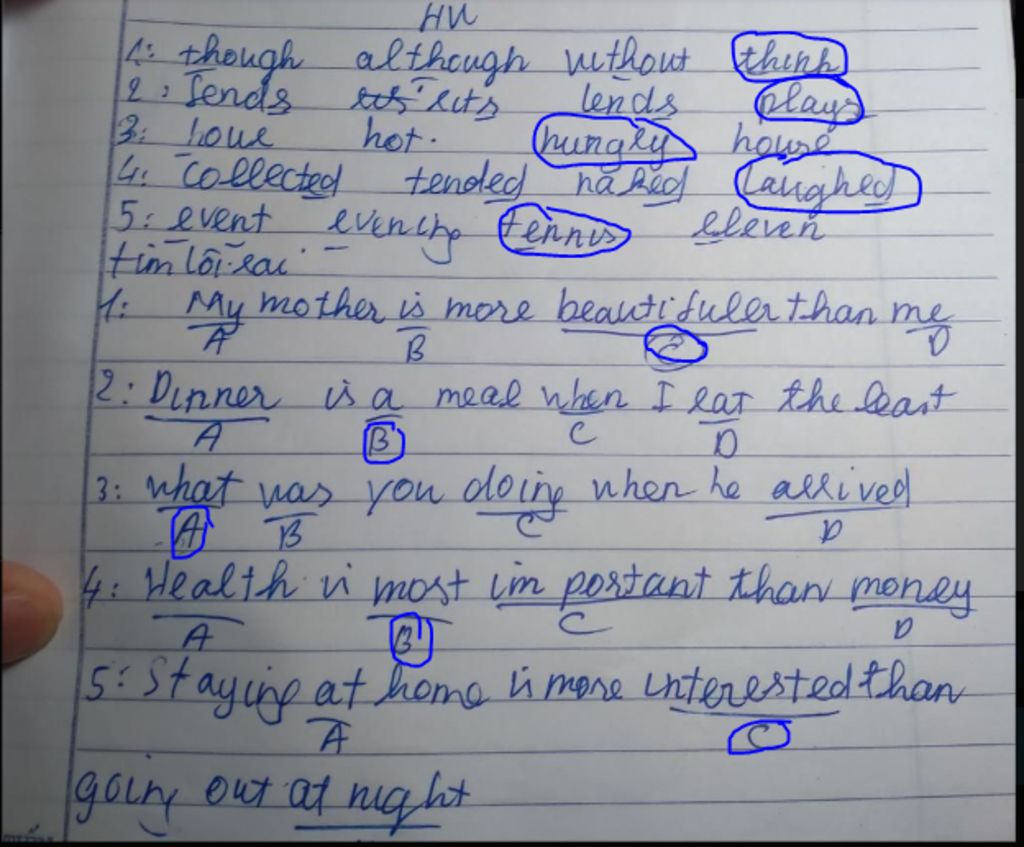 HW
1: though although without think
2: Sends lends plays
3: hour hot. hungly house
4: collected tended naked laughed
5: event evening tennis eleven
tìm lỗi sai
1: My mother is more beautifuler than me
A B C D
2: Dinner is a meal when I eat the least
A B C D
3: what was you doing when he arrived
A B C D
4: Health is most important than money
A B C D
5: Staying at home is more interested than
A C
going out at night